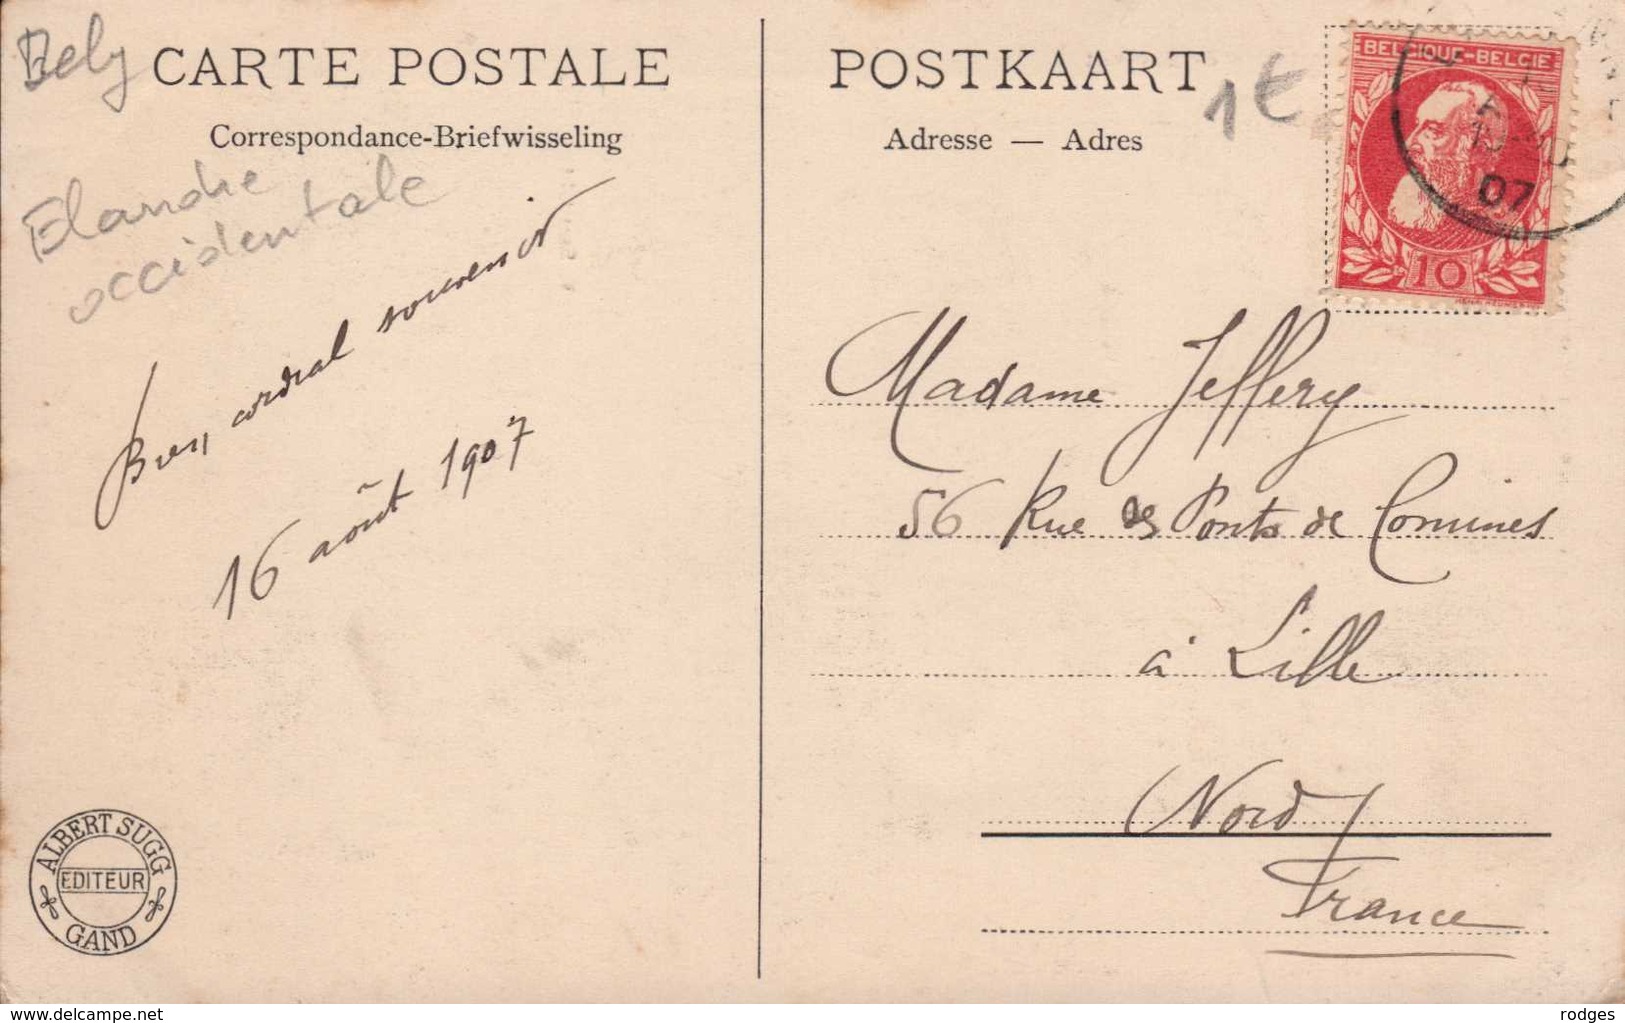 Belg
CARTE POSTALE
Correspondance-Briefwisseling
Flandre
occidentale
Bien cordial souvenir
16 août 1907
ALBERT SUGG
EDITEUR
GAND
POSTKAART
Adresse — Adres
1€
BELGIQUE-BELGIE
10
07
Madame Jeffery
56 Rue des Ponts de Comines
à Lille
Nord
France
www.delcampe.net
rodges